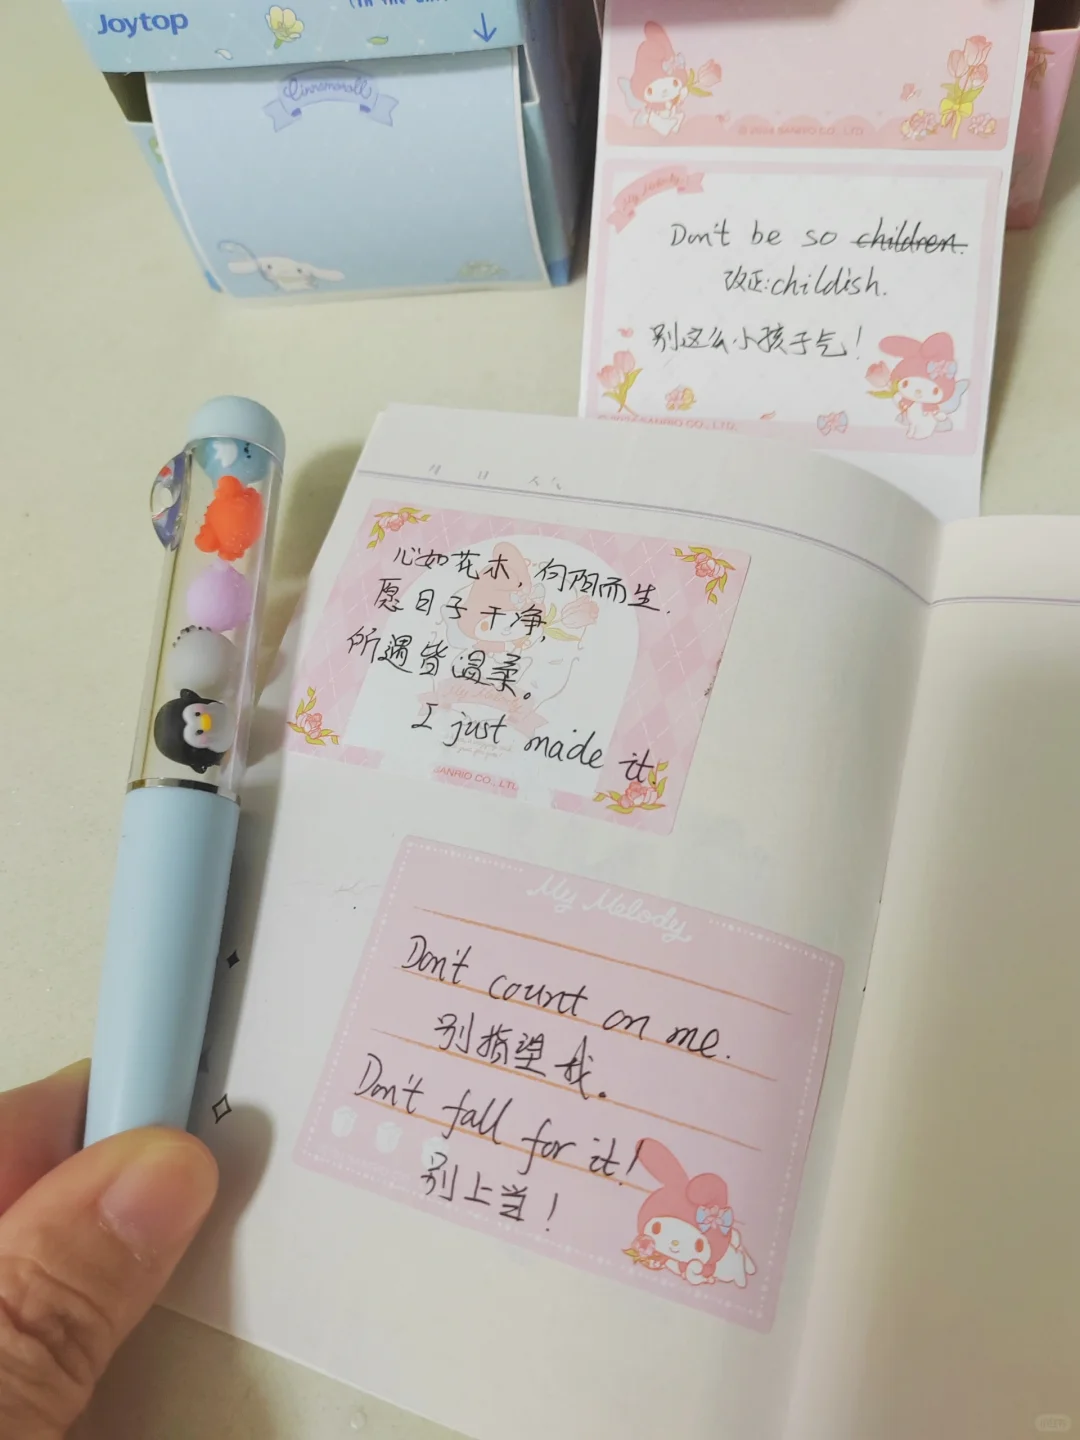 Joytop
Cinnamoroll
© 2024 SANRIO CO., LTD.
My Melody
Don't be so children.
改正:childish.
别这么小孩子气!
SANRIO CO., LTD.
月 日 天气
心如花木,向阳而生.
愿日子干净,
所遇皆温柔。
I just made it
SANRIO CO., LTD
My Melody
Don't count on me.
别指望我。
Don't fall for it!
别上当!